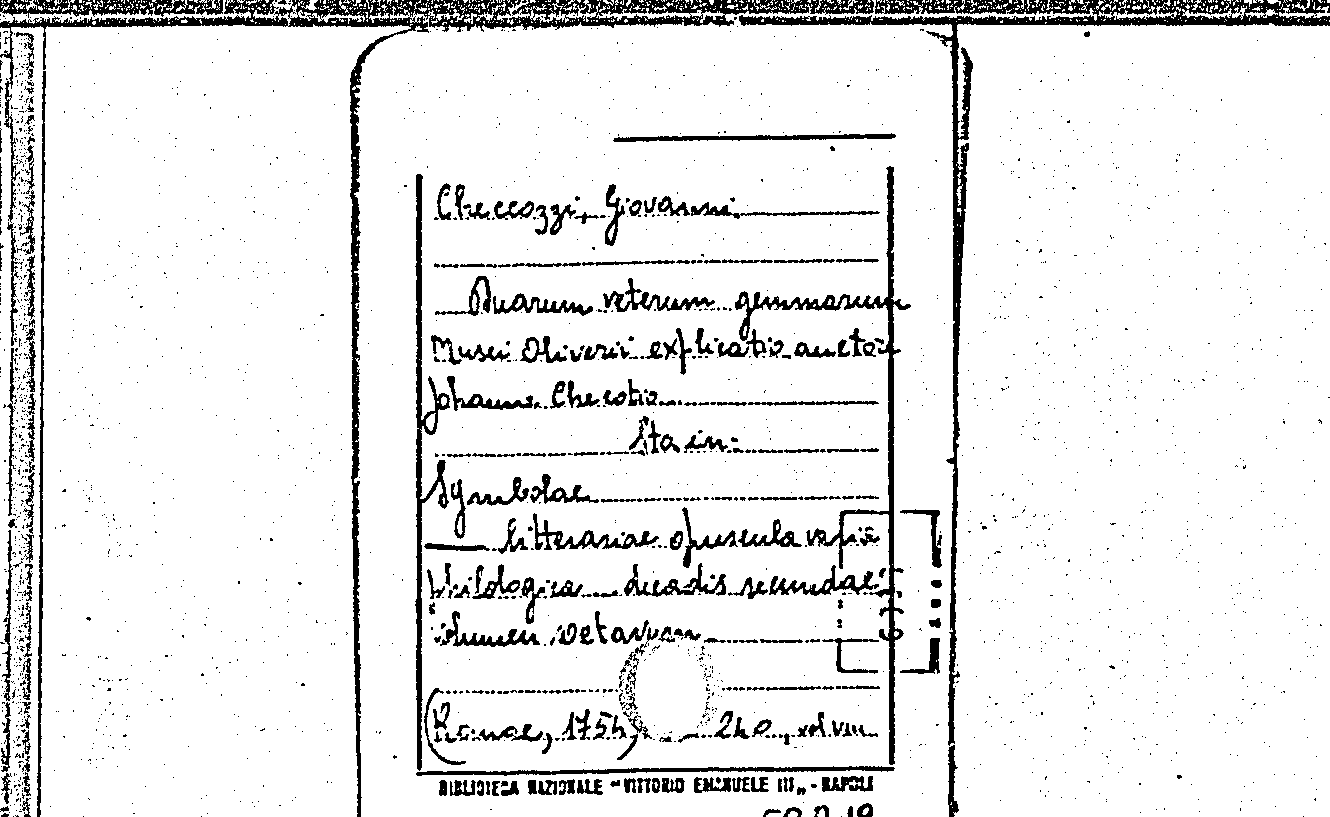 Checcozzi, Giovanni.
Duarum veterum gemmarum
Musei Oliverii explicatio auctore
Johanne Checotio
Sta in:
Symbolae
litterariae opuscula varia
philologica decadis secundae
volumen octavum
(Romae, 1754) 24 o, vol VIII
BIBLIOTECA NAZIONALE "VITTORIO EMANUELE III" - NAPOLI